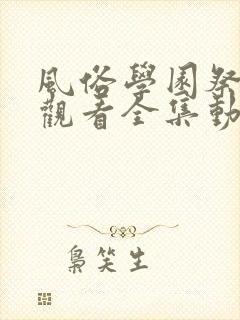 風俗學園祭
觀看全集動
梟笑生